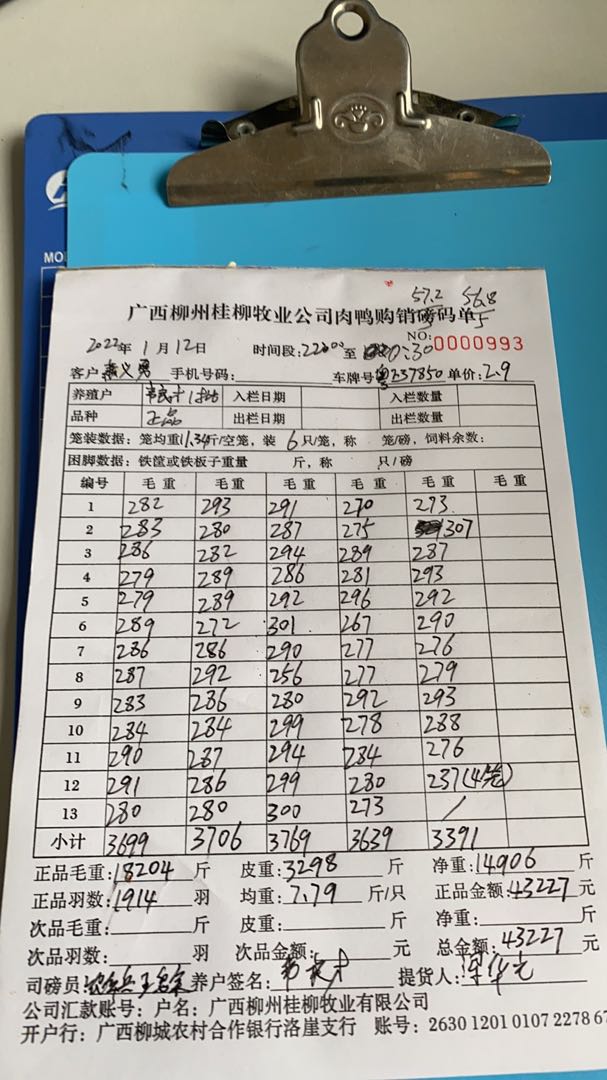 MO
57.2 56.8
5 5
广西柳州桂柳牧业公司肉鸭购销磅码单
NO: 0000993
2022年1月12日 时间段:22:00至 0:30
客户 义勇 手机号码: 车牌号 Z37850 单价:2.9
养殖户 入栏日期 入栏数量
品种 正品 出栏日期 出栏数量
笼装数据: 笼均重11.34斤/空笼, 装 6只/笼, 称 笼/磅, 饲料余数:
困脚数据: 铁筐或铁板子重量 斤, 称 只/磅
编号 毛重 毛重 毛重 毛重 毛重 毛重
1 282 293 291 270 273
2 283 280 287 275 307
3 286 282 294 289 287
4 279 289 286 281 293
5 279 289 292 296 292
6 289 272 301 267 290
7 286 286 290 277 276
8 287 292 256 277 279
9 283 286 280 292 293
10 284 284 299 278 288
11 290 287 294 284 276
12 291 286 299 280 237(4笼)
13 280 280 300 273 /
小计 3699 3706 3769 3639 3391
正品毛重:18204斤 皮重:3298斤 净重:14906斤
正品羽数:1914羽 均重:7.79斤/只 正品金额:43227元
次品毛重: 斤 皮重: 斤 净重: 斤
次品羽数: 羽 次品金额: 元 总金额:43227元
司磅员: 养户签名: 提货人:
公司汇款账号: 户名: 广西柳州桂柳牧业有限公司
开户行: 广西柳城农村合作银行洛崖支行 账号: 2630 1201 0107 2278 67